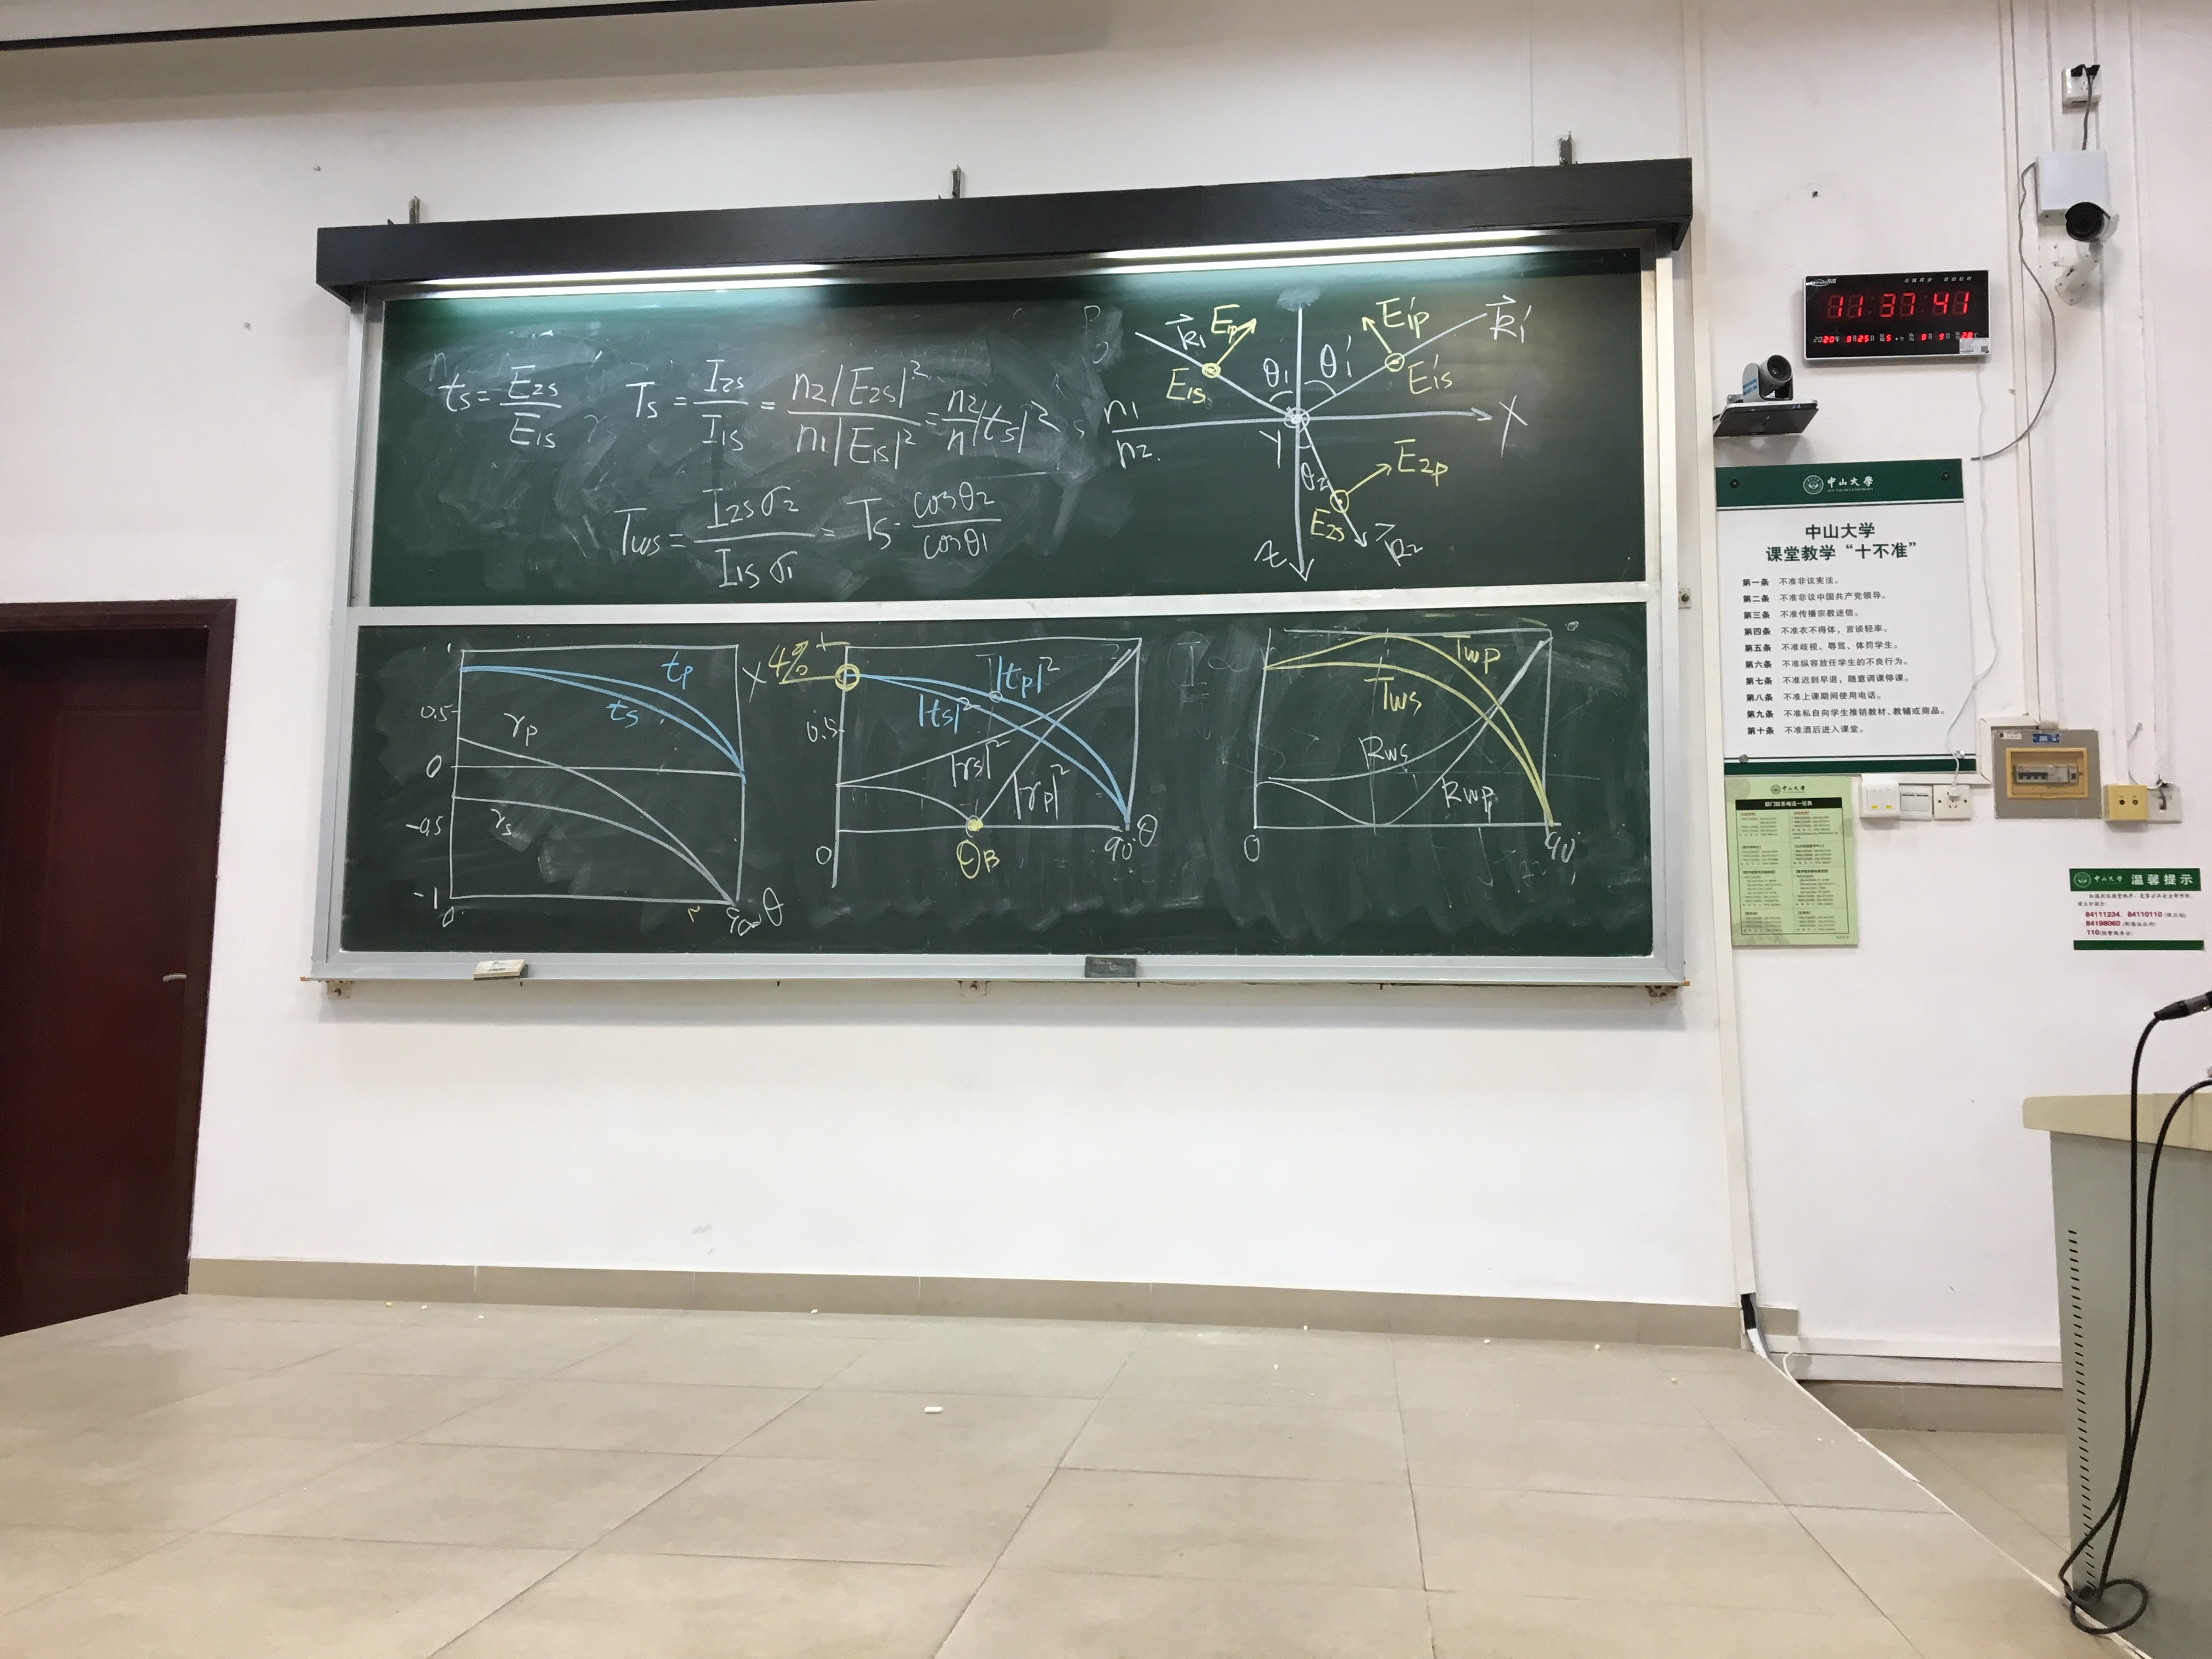 t_s = E_2s / E_1s , T_s = I_2s / I_1s = n_2|E_2s|² / n_1|E_1s|² = n_2/n |t_s|²
T_ws = I_2s σ_2 / I_1s σ_1 = T_s · cosθ_2 / cosθ_1
k_1 E_1p E_1s θ_1 θ_1' E_1p' E_1s' k_1'
n_1 X
n_2 Y θ_2 E_2p
E_2s k_2
z
t_p
t_s
0.5
r_p
0
-0.5 r_s
-1
0 90° θ
4%
1
|t_p|²
|t_s|²
0.5
|r_s|²
|r_p|²
0 θ_B 90° θ
T_wp
T_ws
R_ws
R_wp
0 90°
11:37:41
2020年 9月25日
中山大学
中山大学
课堂教学“十不准”
第一条 不准非议宪法。
第二条 不准非议中国共产党领导。
第三条 不准传播宗教迷信。
第四条 不准衣不得体，言谈轻率。
第五条 不准歧视、辱骂、体罚学生。
第六条 不准纵容放任学生的不良行为。
第七条 不准迟到早退，随意调课停课。
第八条 不准上课期间使用电话。
第九条 不准私自向学生推销教材、教辅或商品。
第十条 不准酒后进入课堂。
中山大学
部门联系电话一览表
中山大学 温馨提示
84111234、84110110
84198060
110